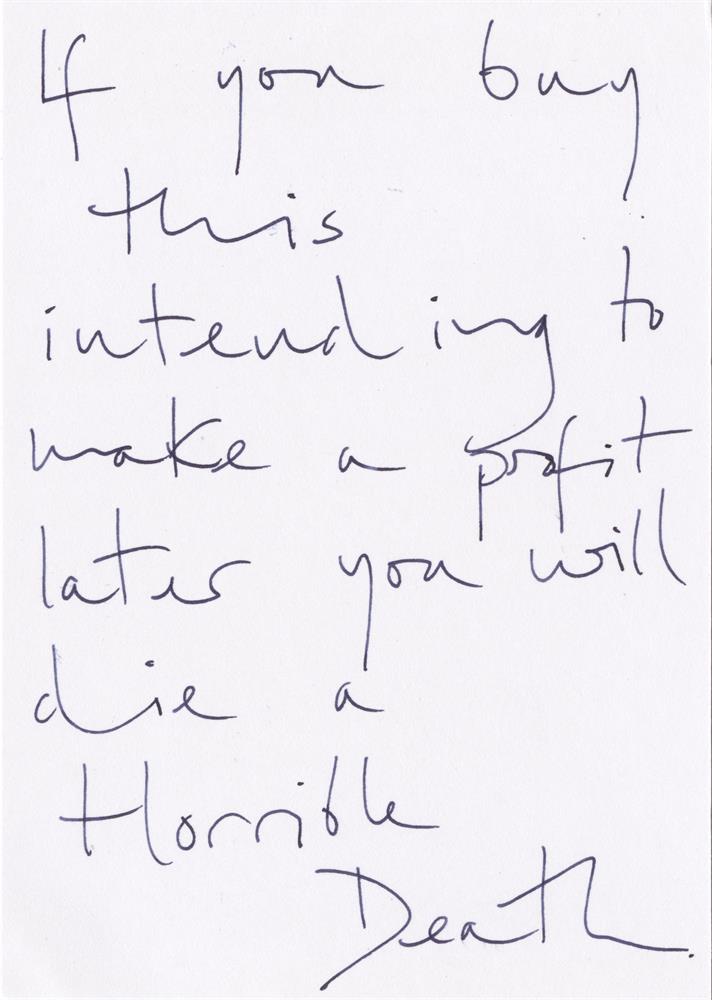 If you buy
this
intending to
make a profit
later you will
die a
Horrible
Death.